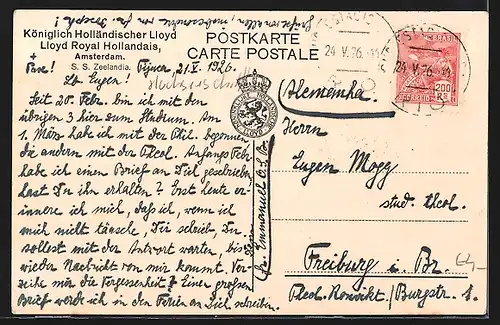 Königlich Holländischer Lloyd
Lloyd Royal Hollandais,
Amsterdam.
S. S. Zeelandia.
POSTKARTE
CARTE POSTALE
24 V. 26
24. V. 26
BRASIL
200
Rs
LLOYD
Pax! 21. V. 1926.
Lb. Eugen!
Seit 20. Febr. bin ich mit den
übrigen 3 hier zum Studium. Am
1. März habe ich mit der Phil. begonnen
die andern mit der Theol. Anfangs Feb.
habe ich einen Brief an Dich geschrieben
hast Du ihn erhalten? Erst heute er-
innere ich mich, daß ich, wenn ich
mich nicht täusche, Dir schrieb, Du
sollest mit der Antwort warten, bis
wieder Nachricht von mir kommt. Ver-
zeihe mir die Vergessenheit! Einen großen
Brief werde ich in den Ferien an Dich schreiben.
Dein
Fr. Emmanuel O.S.B.
Allemanha.
Herrn
Eugen Mogg
stud. theol.
Freiburg i. Br.
Theol. Konvikt / Burgstr. 1.